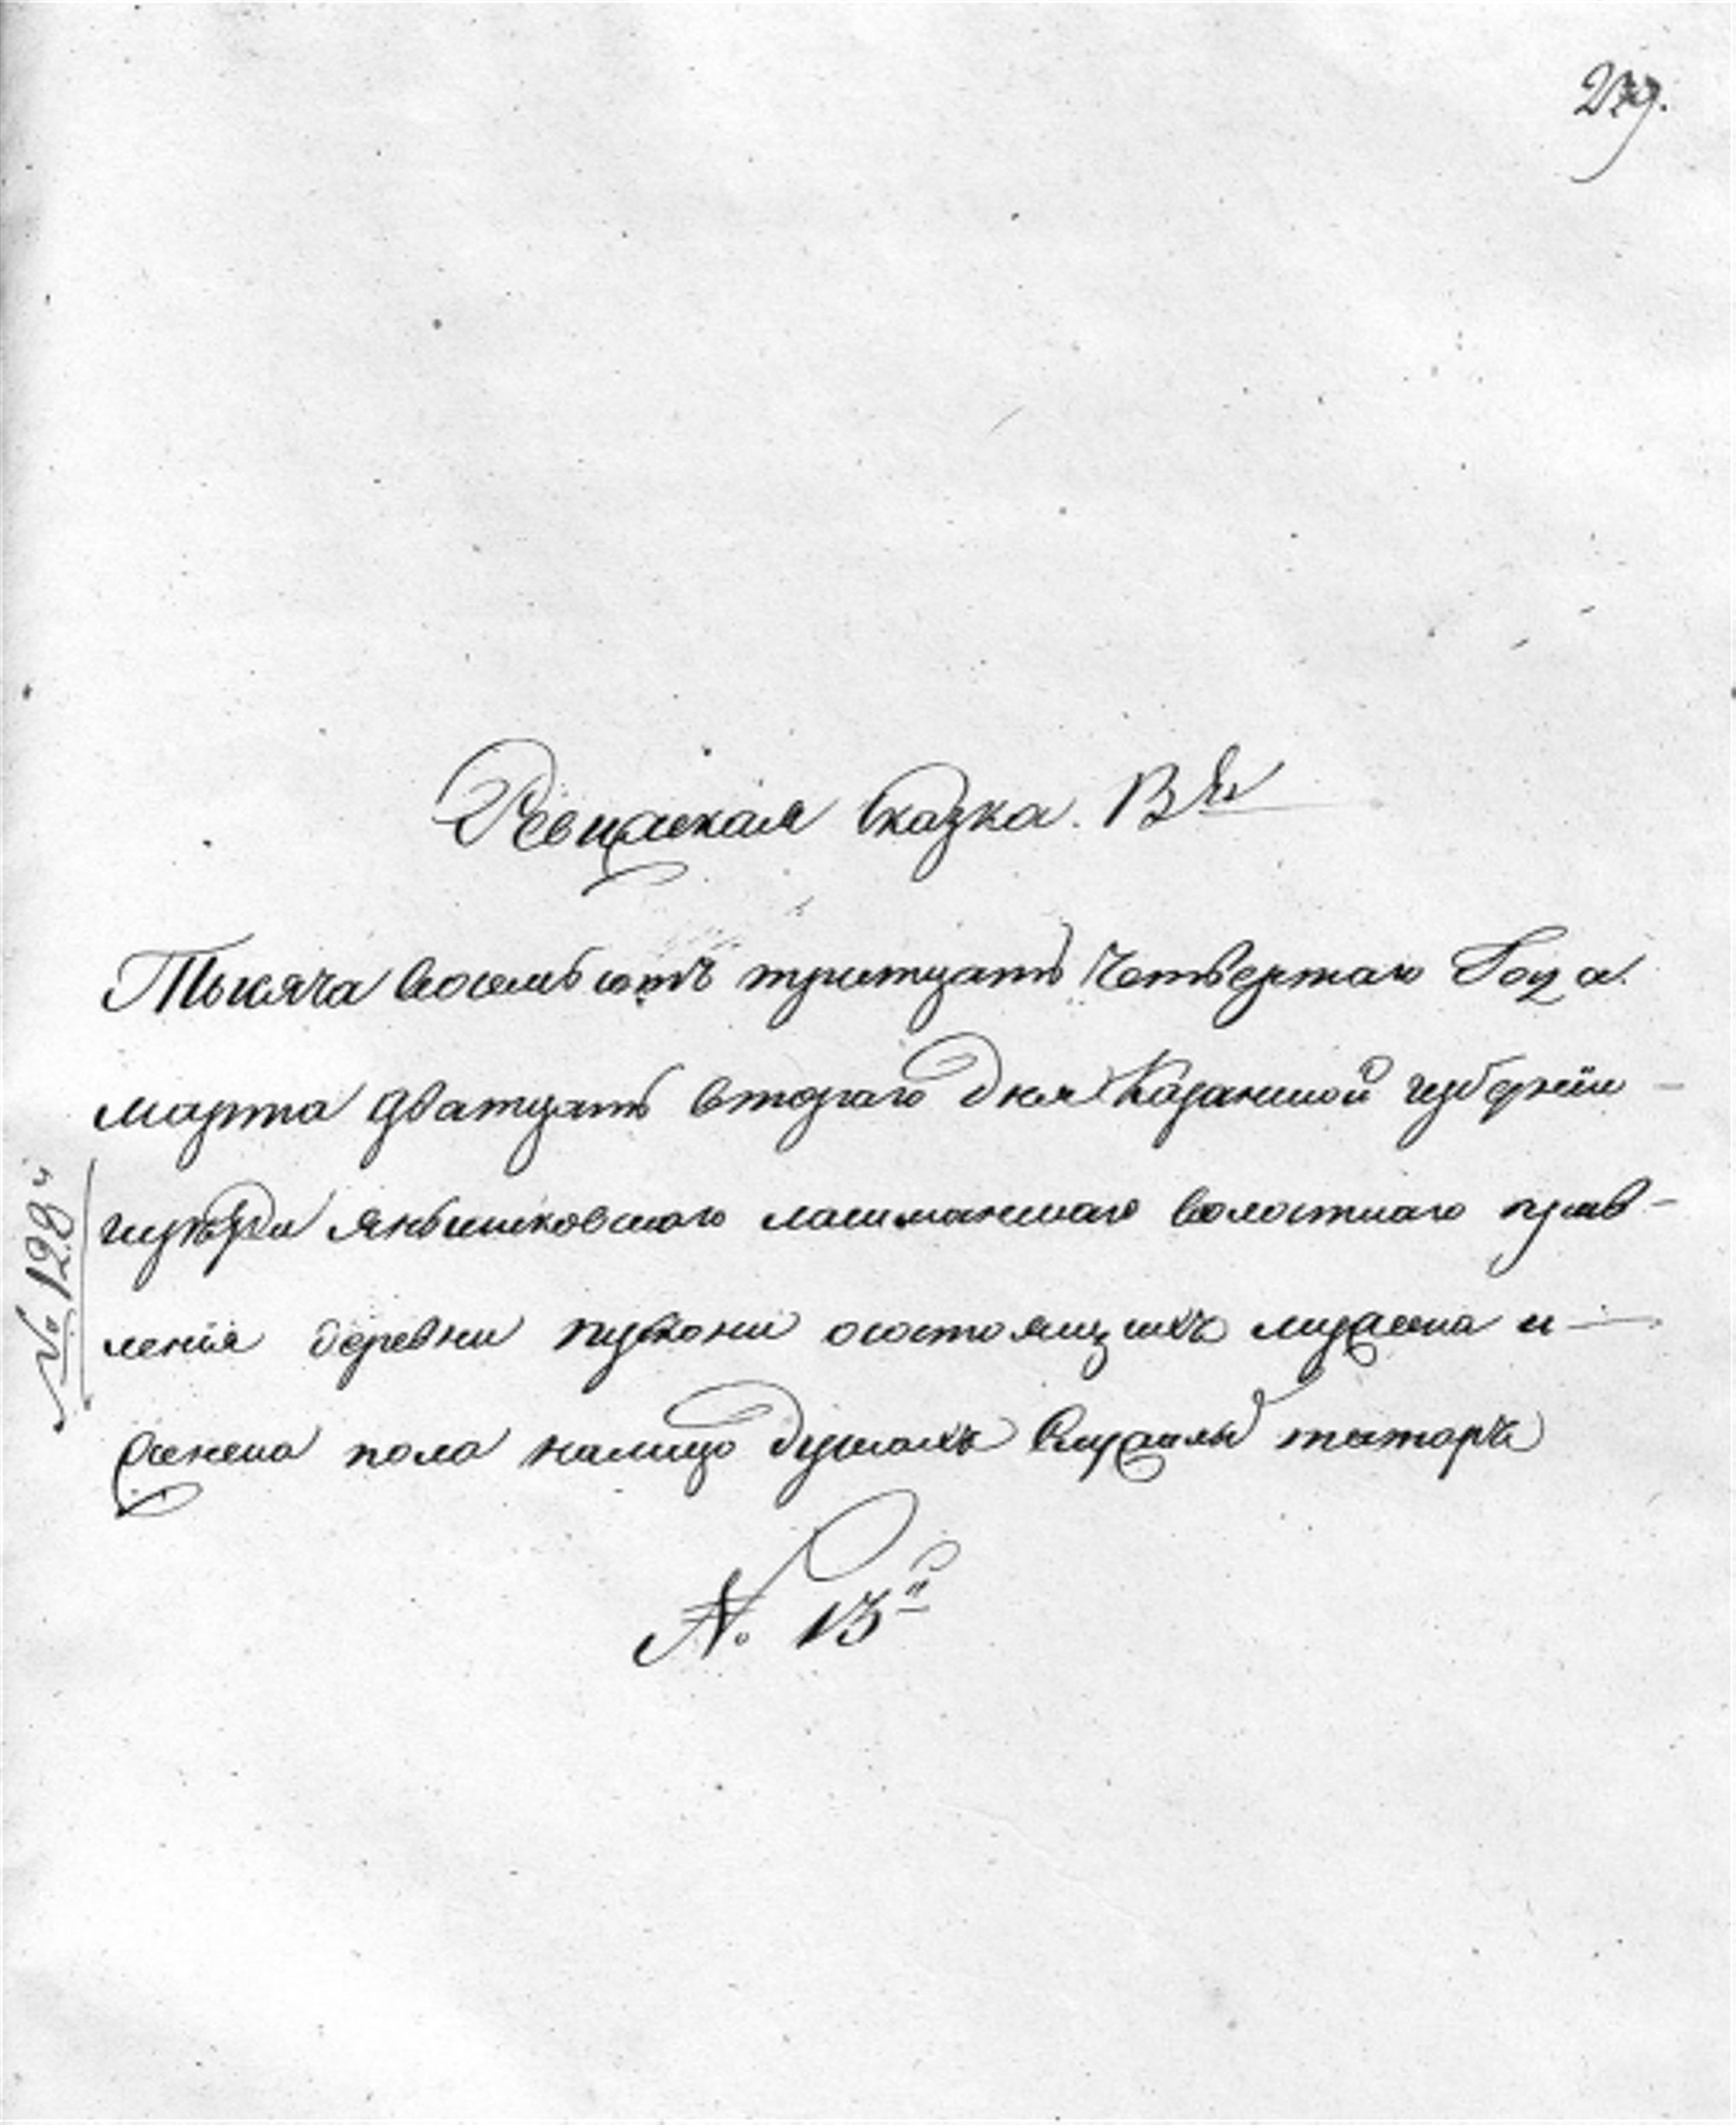 279.
Ревижская Сказка.
Тысяча восемьсотъ тритцать Четвертаго Года.
марта дватцать втораго дня Казанской губернїи
янбышковского лашманскаго волостнаго прав-
ленїя деревни состоящихъ мужеска и
женска пола налицо душахъ татаръ
№. 13й
№ 128й